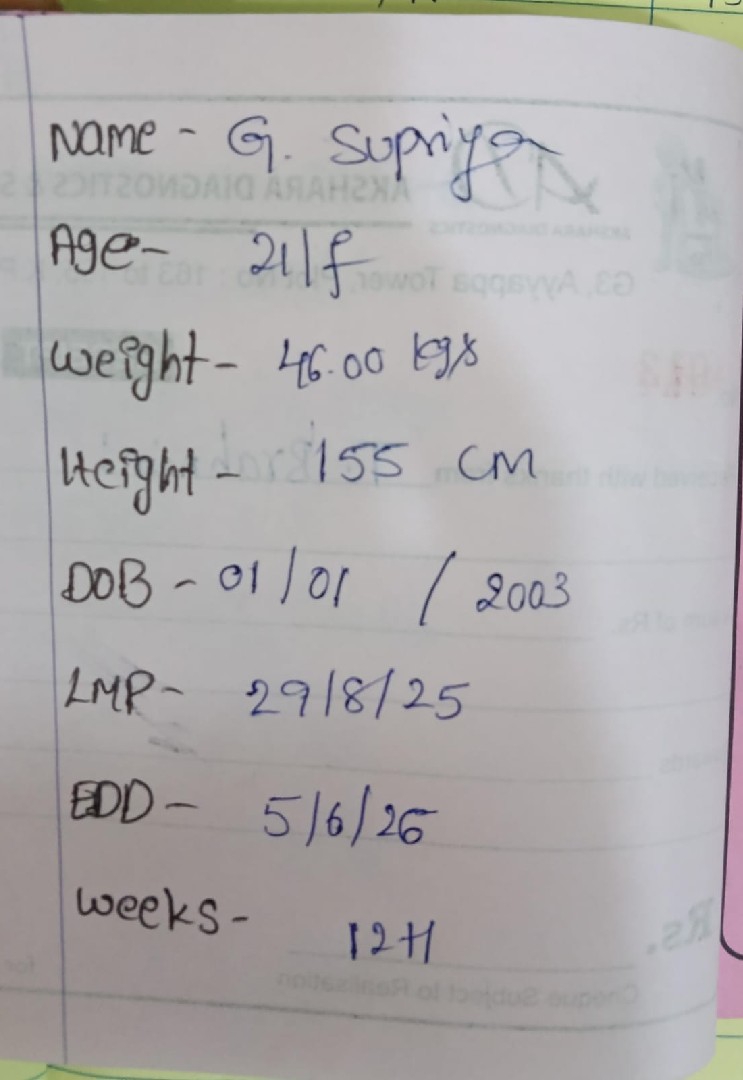 Name - G. Supriya
Age - 21/f
Weight - 46.00 kgs
Height - 155 CM
DOB - 01/01 / 2003
LMP - 29/8/25
EDD - 5/6/26
Weeks -
12H